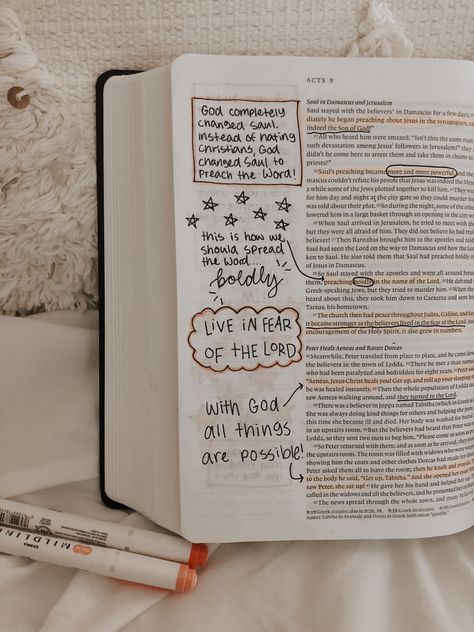 God completely
changed Saul.
instead of hating
Christians, God
changed Saul to
Preach the Word!
this is how we
should spread
the Word....
boldly
LIVE IN FEAR
OF THE LORD
With God
all things
are possible!
ACTS 9
Saul in Damascus and Jerusalem
Saul stayed with the believers in Damascus for a few days.
diately he began preaching about Jesus in the synagogues,
indeed the Son of God!"
All who heard him were amazed. "Isn't this the same man
such devastation among Jesus' followers in Jerusalem?" they
didn't he come here to arrest them and take them in chains
priests?"
Saul's preaching became more and more powerful, and the
mascus couldn't refute his proofs that Jesus was indeed the
a while some of the Jews plotted together to kill him. They
for him day and night at the city gate so they could murder him
was told about their plot. So during the night, some of the other
lowered him in a large basket through an opening in the city
When Saul arrived in Jerusalem, he tried to meet with
but they were all afraid of him. They did not believe he had truly
believer! Then Barnabas brought him to the apostles and
Saul had seen the Lord on the way to Damascus and how the
ken to Saul. He also told them that Saul had preached boldly
of Jesus in Damascus.
So Saul stayed with the apostles and went all around
them, preaching boldly in the name of the Lord. He debated
Greek-speaking Jews, but they tried to murder him. When the
heard about this, they took him down to Caesarea and sent
Tarsus, his hometown.
The church then had peace throughout Judea, Galilee, and
it became stronger as the believers lived in the fear of the Lord.
encouragement of the Holy Spirit, it also grew in numbers.
Peter Heals Aeneas and Raises Dorcas
Meanwhile, Peter traveled from place to place, and he came
the believers in the town of Lydda. There he met a man
who had been paralyzed and bedridden for eight years. Peter
"Aeneas, Jesus Christ heals you! Get up, and roll up your sleeping
he was healed instantly. Then the whole population of Lydda
saw Aeneas walking around, and they turned to the Lord.
There was a believer in Joppa named Tabitha (which in Greek
She was always doing kind things for others and helping the
this time she became ill and died. Her body was washed for
in an upstairs room. But the believers had heard that Peter was
Lydda, so they sent two men to beg him, "Please come as soon
So Peter returned with them; and as soon as he arrived, they
the upstairs room. The room was filled with widows who were
showing him the coats and other clothes Dorcas had made for
Peter asked them all to leave the room; then he knelt and
to the body he said, "Get up, Tabitha." And she opened her
saw Peter, she sat up! He gave her his hand and helped her
called in the widows and all the believers, and he presented her
The news spread through the whole town, and many
ZEBRA
MILDLINER